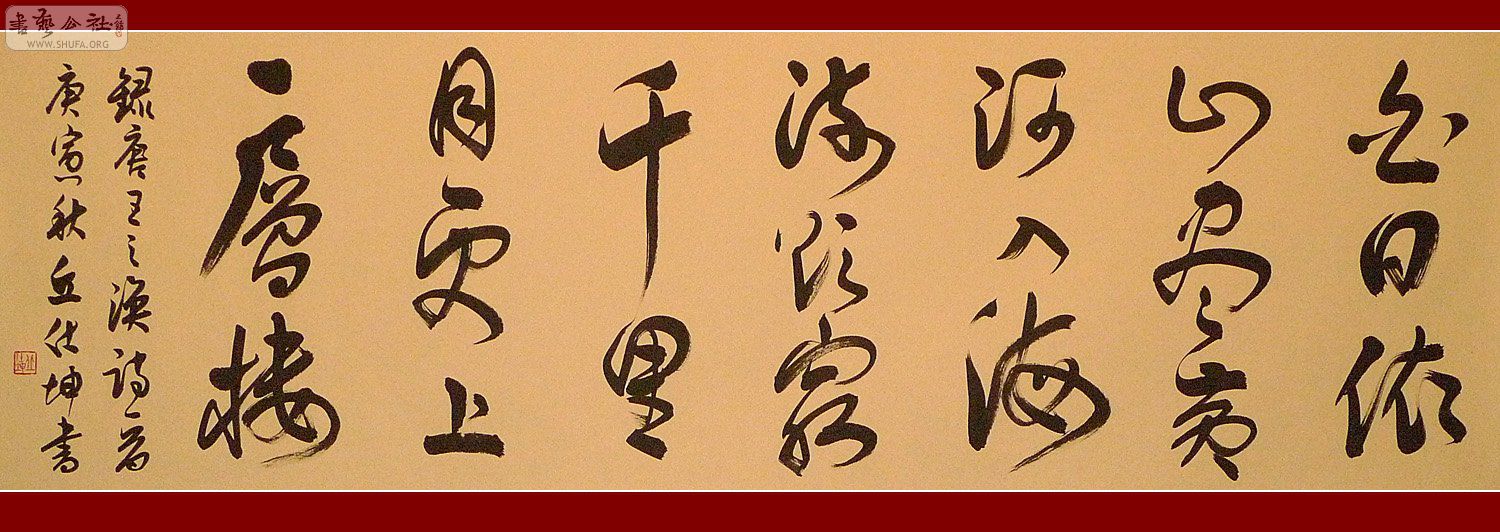 白日依
山尽黄
河入海
流欲穷
千里
目更上
一层楼
录唐王之涣诗一首
庚寅秋丘仕坤书
書藝公社
WWW.SHUFA.ORG